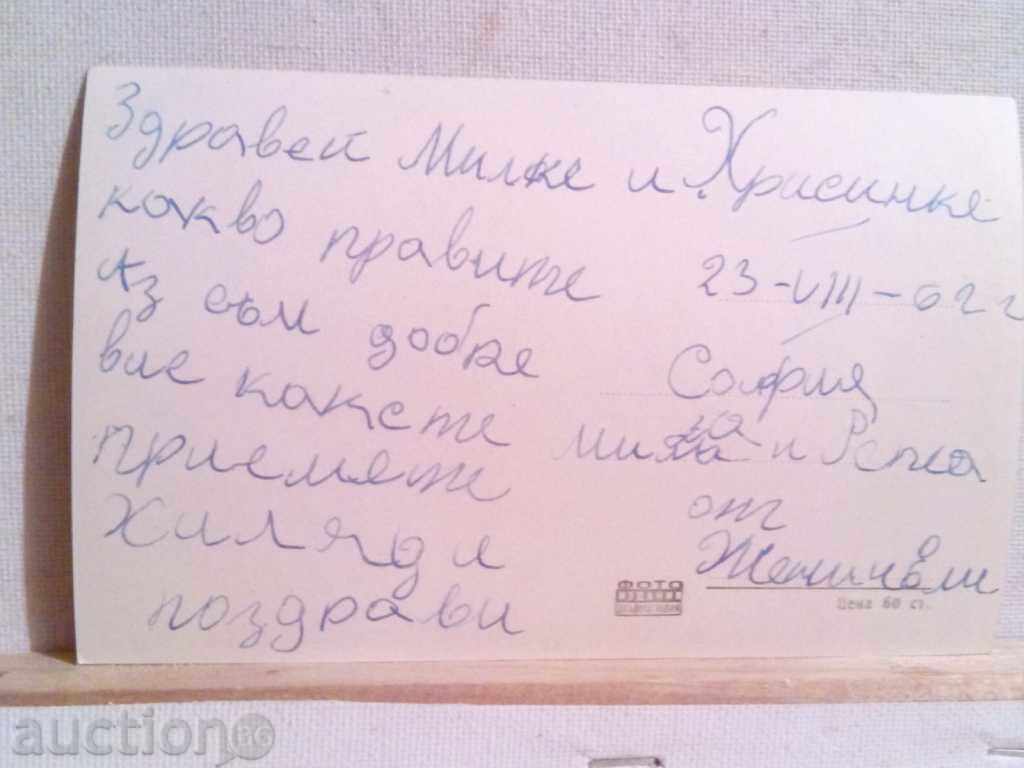 Здравей Милке и Хрисинке
какво правите
Аз съм добре
вие каксте
приемете
Хиляди
поздрави
23-VIII-62 г
София
за
Миха и Репка
от
ФОТО
Цена 60 ст.
auction BG